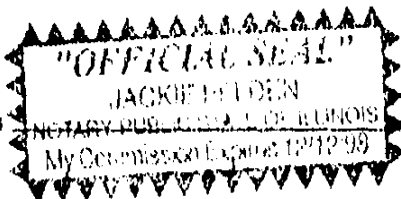 "OFFICIAL SEAL"
JACKIE
NOTARY PUBLIC STATE OF ILLINOIS
My Commission Expires 12/12/98